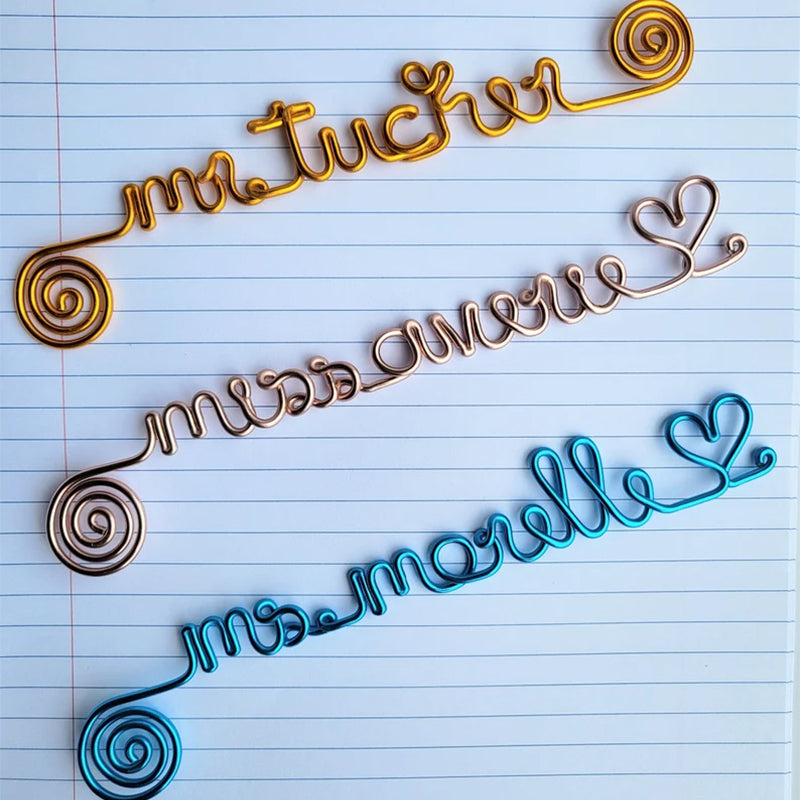 mr. tucker
miss averie
ms. morelle